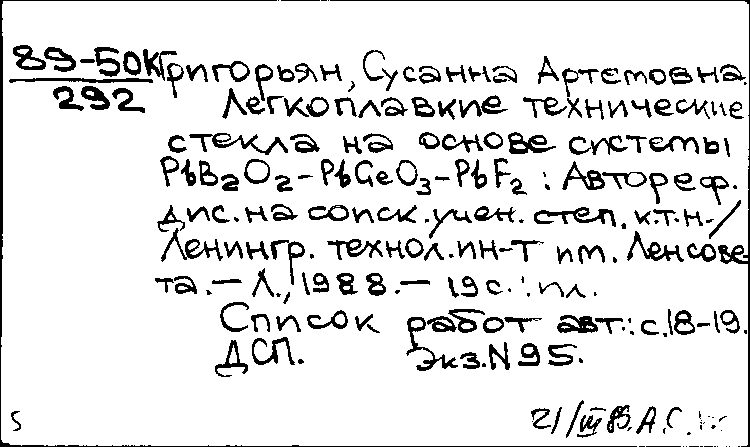 89-50К Григорьян, Сусанна Артемовна.
292 Легкоплавкие технические
стекла на основе системы
PbB2O2-PbGeO3-PbF2 : Автореф.
дис. на соиск. учен. степ. к.т.н./
Ленингр. технол. ин-т им. Ленсове-
та. — Л., 1988. — 19 с. : ил.
Список работ авт.: с.18-19.
ДСП. Экз. N 95.
5 21/III 89. А.С.